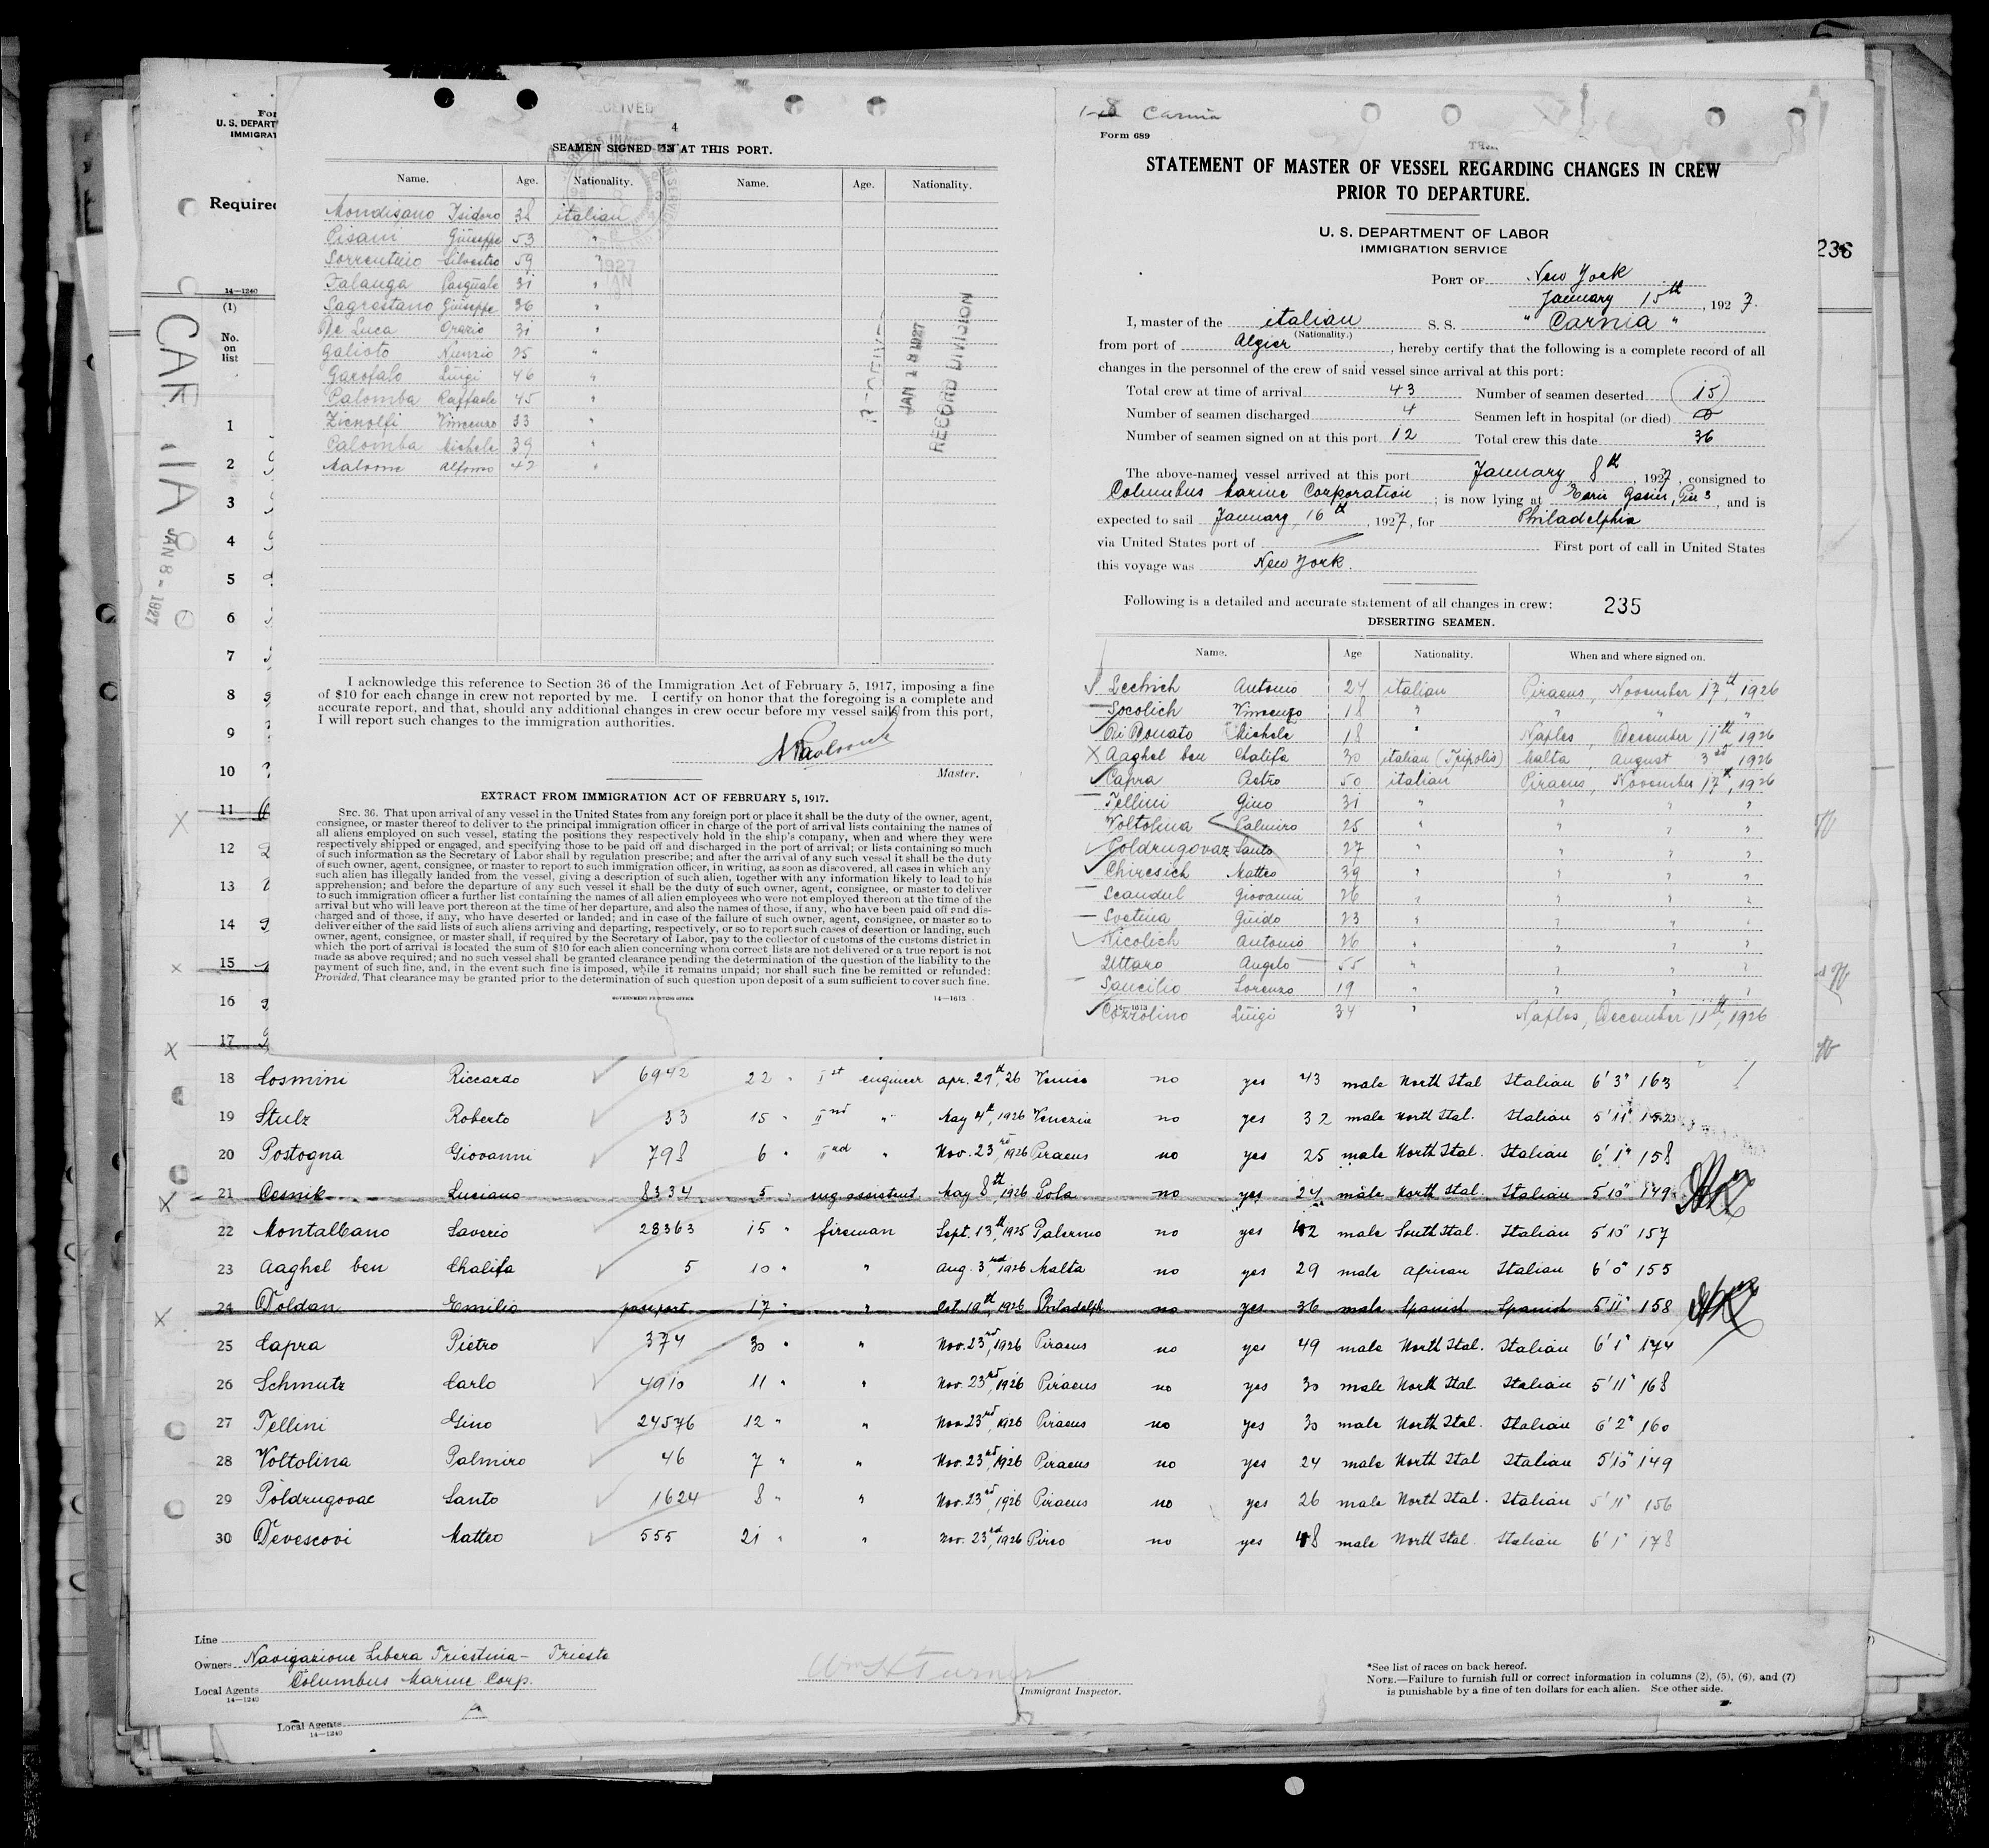 For
U. S. DEPART
IMMIGRAT
Required
14—1240
(1)
No.
on
list
1
2
3
4
5
6
7
8
9
10
11
12
13
14
15
16
17
JAN 8 - 1927
4
SEAMEN SIGNED ON AT THIS PORT.
Name. Age. Nationality. Name. Age. Nationality.
Isidoro 38 italian
Pisani Giuseppe 53 "
Sorrentino Silvestro 59 "
Falanga Pasquale 31 "
Sagrestano Giuseppe 36 "
De Luca Orazio 31 "
Galioto Nunzio 25 "
Garofalo Luigi 46 "
Palomba Raffaele 45 "
Vincenzo 33 "
Palomba Michele 39 "
Alfonso 42 "
JAN 18 1927
RECORD DIVISION
I acknowledge this reference to Section 36 of the Immigration Act of February 5, 1917, imposing a fine
of $10 for each change in crew not reported by me. I certify on honor that the foregoing is a complete and
accurate report, and that, should any additional changes in crew occur before my vessel sails from this port,
I will report such changes to the immigration authorities.
Master.
EXTRACT FROM IMMIGRATION ACT OF FEBRUARY 5, 1917.
SEC. 36. That upon arrival of any vessel in the United States from any foreign port or place it shall be the duty of the owner, agent,
consignee, or master thereof to deliver to the principal immigration officer in charge of the port of arrival lists containing the names of
all aliens employed on such vessel, stating the positions they respectively hold in the ship's company, when and where they were
respectively shipped or engaged, and specifying those to be paid off and discharged in the port of arrival; or lists containing so much
of such information as the Secretary of Labor shall by regulation prescribe; and after the arrival of any such vessel it shall be the duty
of such owner, agent, consignee, or master to report to such immigration officer, in writing, as soon as discovered, all cases in which any
such alien has illegally landed from the vessel, giving a description of such alien, together with any information likely to lead to his
apprehension; and before the departure of any such vessel it shall be the duty of such owner, agent, consignee, or master to deliver
to such immigration officer a further list containing the names of all alien employees who were not employed thereon at the time of the
arrival but who will leave port thereon at the time of her departure, and also the names of those, if any, who have been paid off and dis-
charged and of those, if any, who have deserted or landed; and in case of the failure of such owner, agent, consignee, or master so to
deliver either of the said lists of such aliens arriving and departing, respectively, or so to report such cases of desertion or landing, such
owner, agent, consignee, or master shall, if required by the Secretary of Labor, pay to the collector of customs of the customs district in
which the port of arrival is located the sum of $10 for each alien concerning whom correct lists are not delivered or a true report is not
made as above required; and no such vessel shall be granted clearance pending the determination of the question of the liability to the
payment of such fine, and, in the event such fine is imposed, while it remains unpaid; nor shall such fine be remitted or refunded:
Provided, That clearance may be granted prior to the determination of such question upon deposit of a sum sufficient to cover such fine.
GOVERNMENT PRINTING OFFICE 14—1613
Carnia
Form 689
STATEMENT OF MASTER OF VESSEL REGARDING CHANGES IN CREW
PRIOR TO DEPARTURE.
U. S. DEPARTMENT OF LABOR
IMMIGRATION SERVICE
236
PORT OF New York
January 15th, 1927.
I, master of the italian S. S. "Carnia"
(Nationality.)
from port of Algier, hereby certify that the following is a complete record of all
changes in the personnel of the crew of said vessel since arrival at this port:
Total crew at time of arrival 43 Number of seamen deserted 15
Number of seamen discharged 4 Seamen left in hospital (or died) 0
Number of seamen signed on at this port 12 Total crew this date 36
The above-named vessel arrived at this port January 8th, 1927, consigned to
Columbus Marine Corporation; is now lying at Pier 3, and is
expected to sail January 16th, 1927, for Philadelphia
via United States port of First port of call in United States
this voyage was New York.
Following is a detailed and accurate statement of all changes in crew: 235
DESERTING SEAMEN.
Name. Age Nationality. When and where signed on.
Antonio 24 italian Piraeus, November 17th, 1926
Socolich Vincenzo 18 " " " "
Di Donato Michele 18 " Naples, December 11th 1926
X Aaghel ben Chalifa 30 italian (Tripolis) Malta, August 3rd 1926
Capra Pietro 50 italian Piraeus, November 17th, 1926
Tellini Gino 31 " " " "
Voltolina Palmiro 25 " " " "
Poldrugovaz Santo 27 " " " "
Chiresich Matteo 39 " " " "
Giovanni 26 " " " "
Guido 23 " " " "
Nicolich Antonio 26 " " " "
Uttaro Angelo 55 " " " "
Sancilio Lorenzo 19 " " " "
14—1613
Cozzolino Luigi 34 " Naples, December 11th, 1926
18 Cosmini Riccardo 6942 22 " Ist engineer apr. 27th, 26 Venice no yes 43 male North Ital Italian 6' 3" 163
19 Stulz Roberto 33 15 " IInd " May 4th, 1926 Venezia no yes 32 male North Ital. Italian 5' 11" 152
20 Postogna Giovanni 798 6 " " Nov. 23rd, 1926 Piraeus no yes 25 male North Ital. Italian 6' 1" 158
21 Cesnik Luciano 8334 5 " eng assistent May 8th, 1926 Pola no yes 24 male North Ital. Italian 5'10" 149
22 Montalbano Saverio 28363 15 " fireman Sept. 13th, 1925 Palermo no yes 42 male South Ital. Italian 5'10" 157
23 Aaghel ben Chalifa 5 10 " " Aug. 3rd, 1926 Malta no yes 29 male African Italian 6' 0" 155
24 Doldan Emilio passport 17 " " Oct. 19th, 1926 Philadelph. no yes 36 male Spanish Spanish 5'11" 158
25 Capra Pietro 374 30 " " Nov. 23rd, 1926 Piraeus no yes 49 male North Ital. Italian 6' 1" 174
26 Schmutz Carlo 4910 11 " " Nov. 23rd, 1926 Piraeus no yes 30 male North Ital. Italian 5' 11" 168
27 Tellini Gino 24576 12 " " Nov 23rd, 1926 Piraeus no yes 30 male North Ital. Italian 6' 2" 160
28 Voltolina Palmiro 46 7 " " Nov. 23rd, 1926 Piraeus no yes 24 male North Ital Italian 5'10" 149
29 Poldrugovac Santo 1624 8 " " Nov. 23rd, 1926 Piraeus no yes 26 male North Ital. Italian 5' 11" 156
30 Devescovi Matteo 555 21 " " Nov. 23rd, 1926 Pireo no yes 48 male North Ital. Italian 6' 1" 178
Line
Owners Navigazione Libera Triestina - Trieste
Local Agents Columbus Marine Corp.
14—1240
Wm H Turner
Immigrant Inspector.
*See list of races on back hereof.
NOTE.—Failure to furnish full or correct information in columns (2), (5), (6), and (7)
is punishable by a fine of ten dollars for each alien. See other side.
Local Agents
14—1240